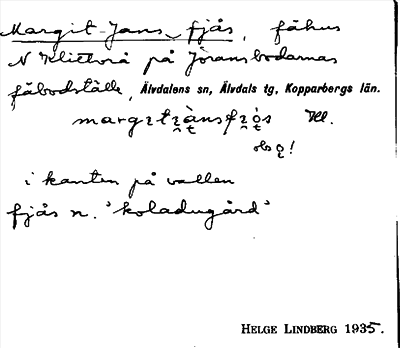 Margit-Jans fjås, fähus
N Klitterå på Jöransbodarnas
fäbodställe, Älvdalens sn, Älvdals tg, Kopparbergs län.
obs !
i kanten på vallen
fjås n. 'koladugård'
HELGE LINDBERG 1935.